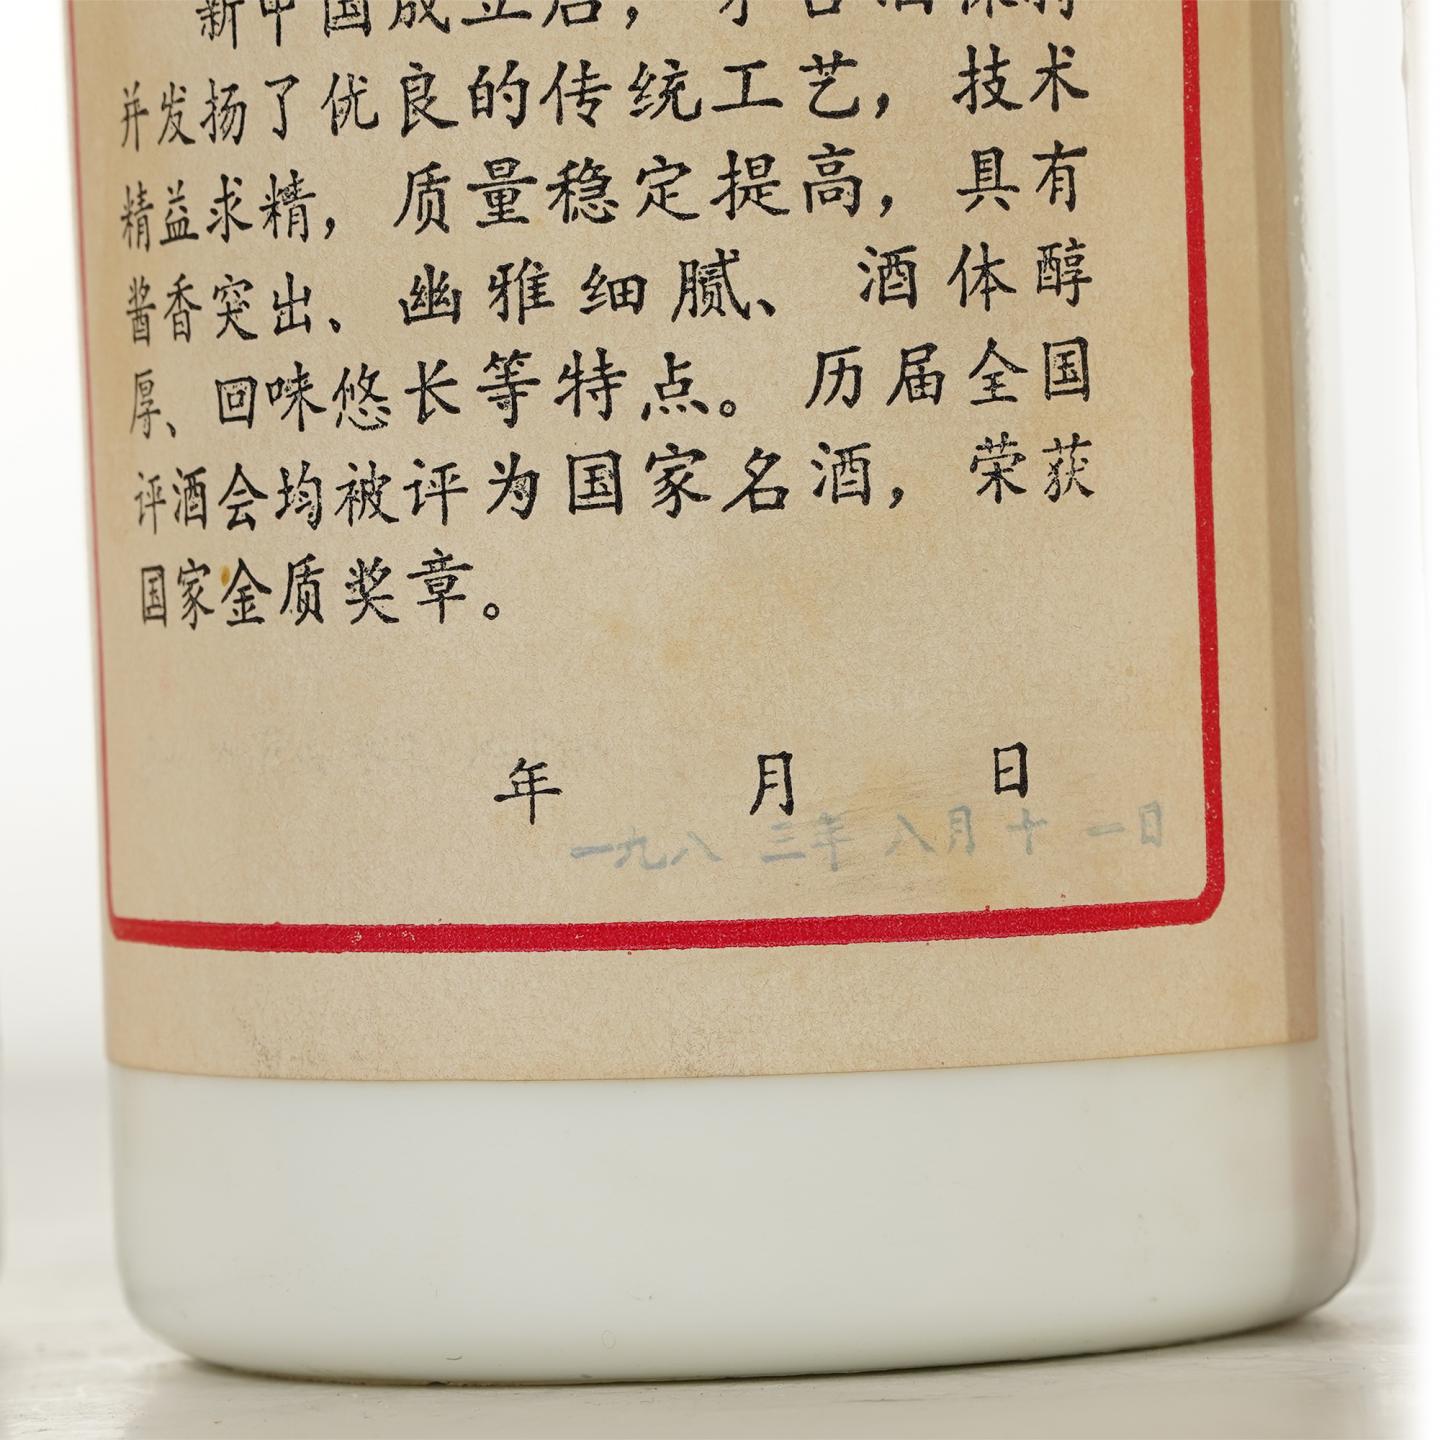 新中国成立后，茅台酒保持
并发扬了优良的传统工艺，技术
精益求精，质量稳定提高，具有
酱香突出、幽雅细腻、酒体醇
厚、回味悠长等特点。历届全国
评酒会均被评为国家名酒，荣获
国家金质奖章。
年 月 日
一九八三年八月十一日